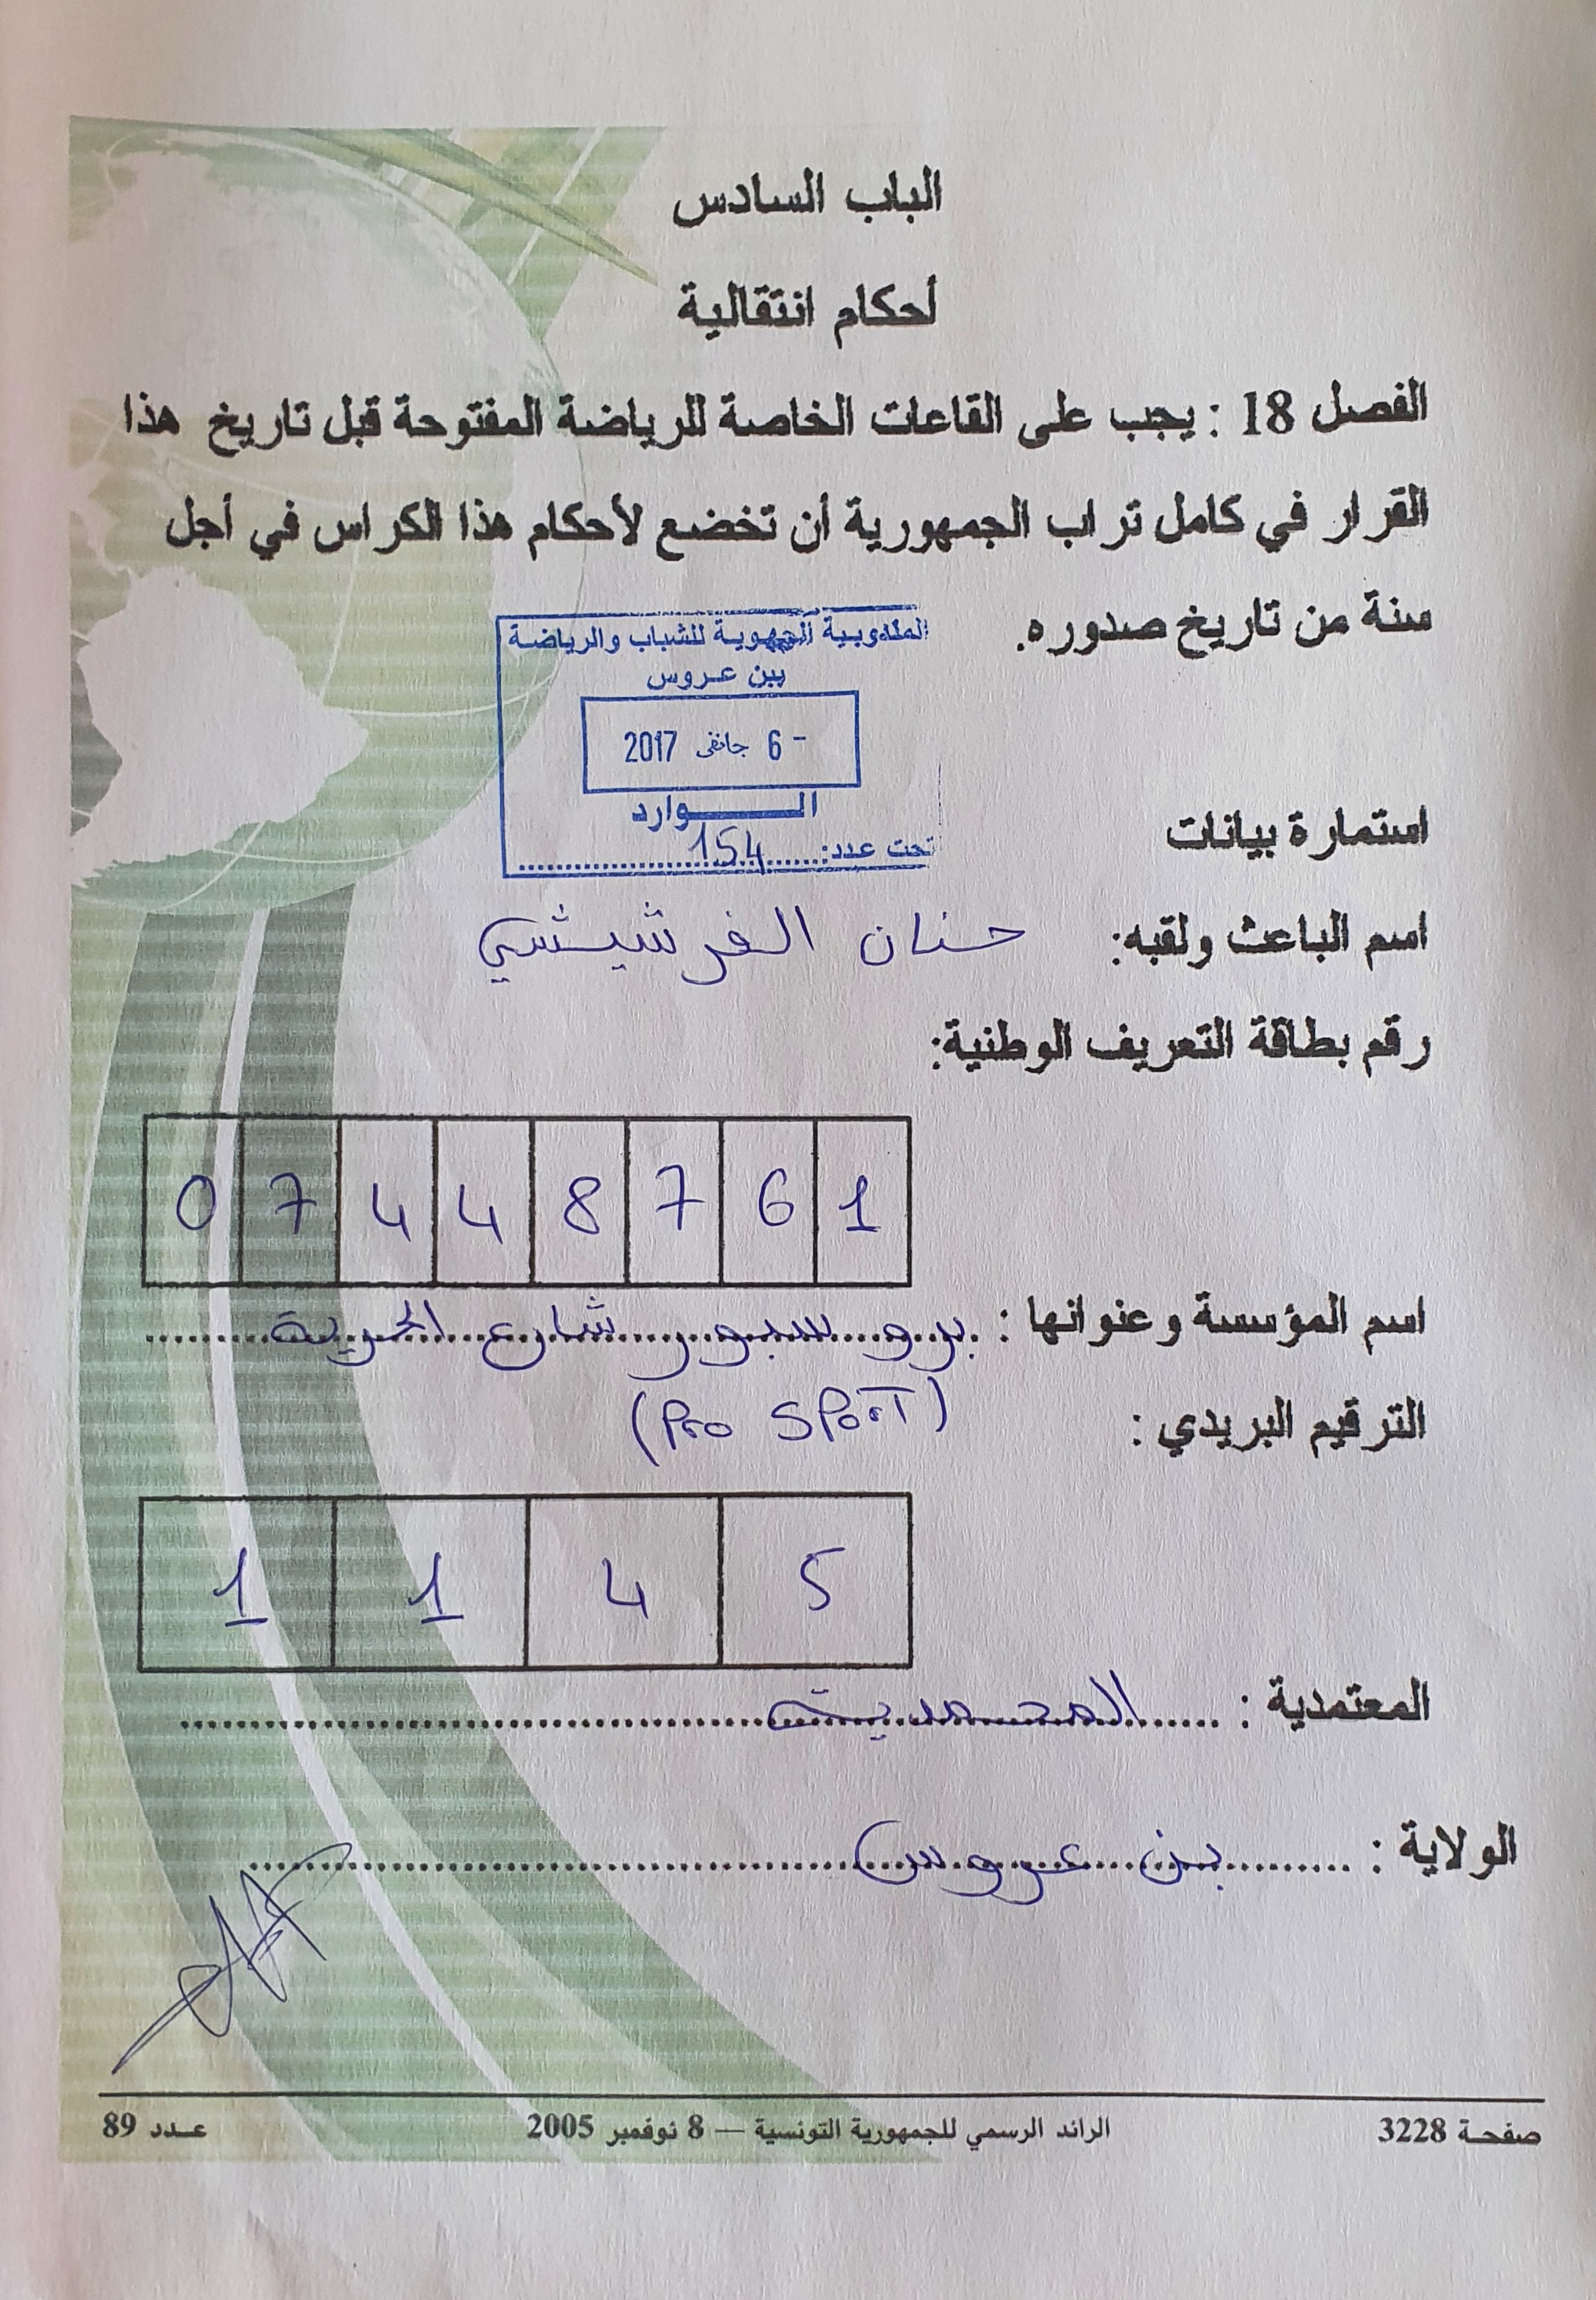 الباب السادس
أحكام انتقالية
الفصل 18 : يجب على القاعات الخاصة للرياضة المفتوحة قبل تاريخ هذا
القرار في كامل تراب الجمهورية أن تخضع لأحكام هذا الكراس في أجل
سنة من تاريخ صدوره.
المندوبية الجهوية للشباب والرياضة
ببن عروس
- 6 جانفي 2017
الـــوارد
تحت عدد: 154
استمارة بيانات
اسم الباعث ولقبه: حنان الفرشيشي
رقم بطاقة التعريف الوطنية:
0 7 4 4 8 7 6 1
اسم المؤسسة وعنوانها : برو سبور شارع الحرية
(Pro SPORT)
الترقيم البريدي :
1 1 4 5
المعتمدية : المحمدية
الولاية : بن عروس
صفحة 3228 الرائد الرسمي للجمهورية التونسية — 8 نوفمبر 2005 عـدد 89